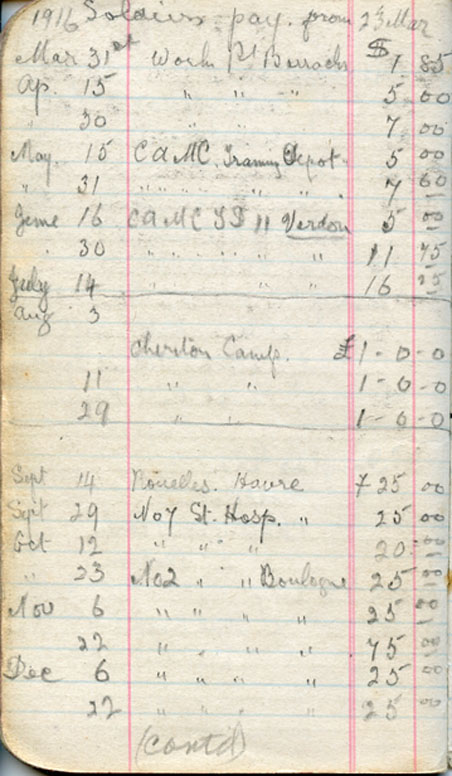 1916 Soldiers pay. from 24 Mar
Mar 31st Work Pt Barracks $ 1 85
Ap. 15 " " " 5 00
" 30 " " 7 00
May. 15 CAMC. Training Depot. 5 00
" 31 " " " " " " 7 60
June 16 CAMC TS 11 Verdon 5 00
" 30 " " " " " " 11 75
July 14 " " 16 25
Aug 3
Cheriton Camp. £1-0-0
11 " " 1-0-0
29 " " 1-0-0
Sept 14 Havre F 25 00
Sept 29 No 7 St. Hosp. " 25 00
Oct 12 " " " 20 00
" 23 No2 " " Boulogne 25 00
Nov 6 " " " " 25 00
22 " " " " 75 00
Dec 6 " " " " 25 00
22 " " " " 25 00
(contd)